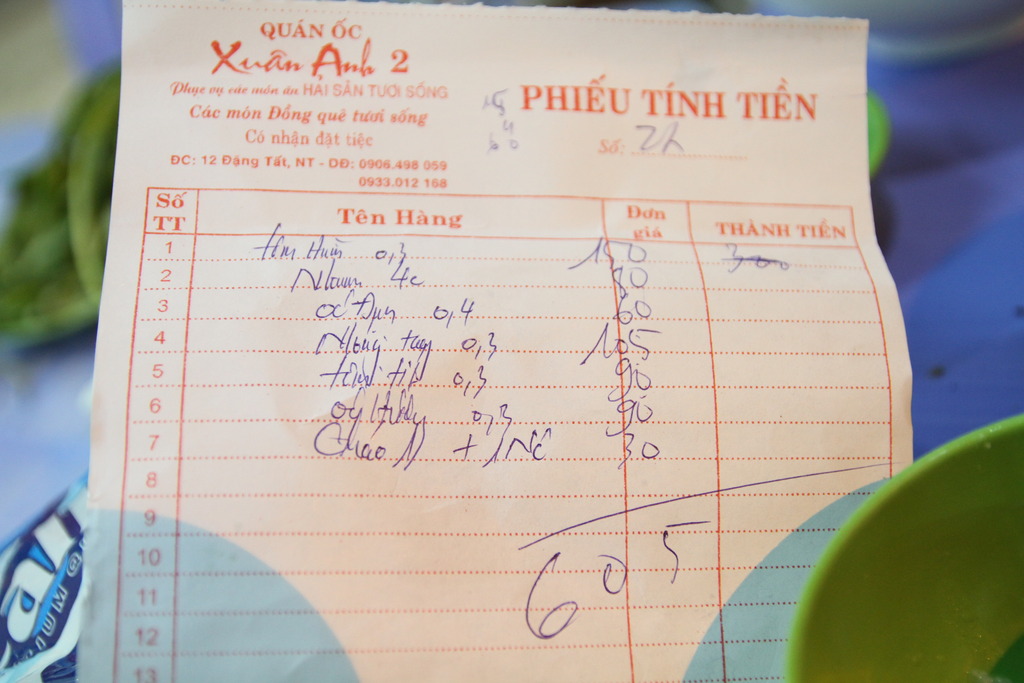 QUÁN ỐC
Xuân Anh 2
Phục vụ các món ăn HẢI SẢN TƯƠI SỐNG
Các món Đồng quê tươi sống
Có nhận đặt tiệc
ĐC: 12 Đặng Tất, NT - DĐ: 0906.498 059
0933.012 168
PHIẾU TÍNH TIỀN
Số: 2h
Số TT Tên Hàng Đơn giá THÀNH TIỀN
1 tôm 0,3 150 300
2 Nhum 4c 80
3 0,4 60
4 Móng tay 0,3 105
5 0,3 90
6 0,3 90
7 Cháo 30
8
9
10
11
12
13
605